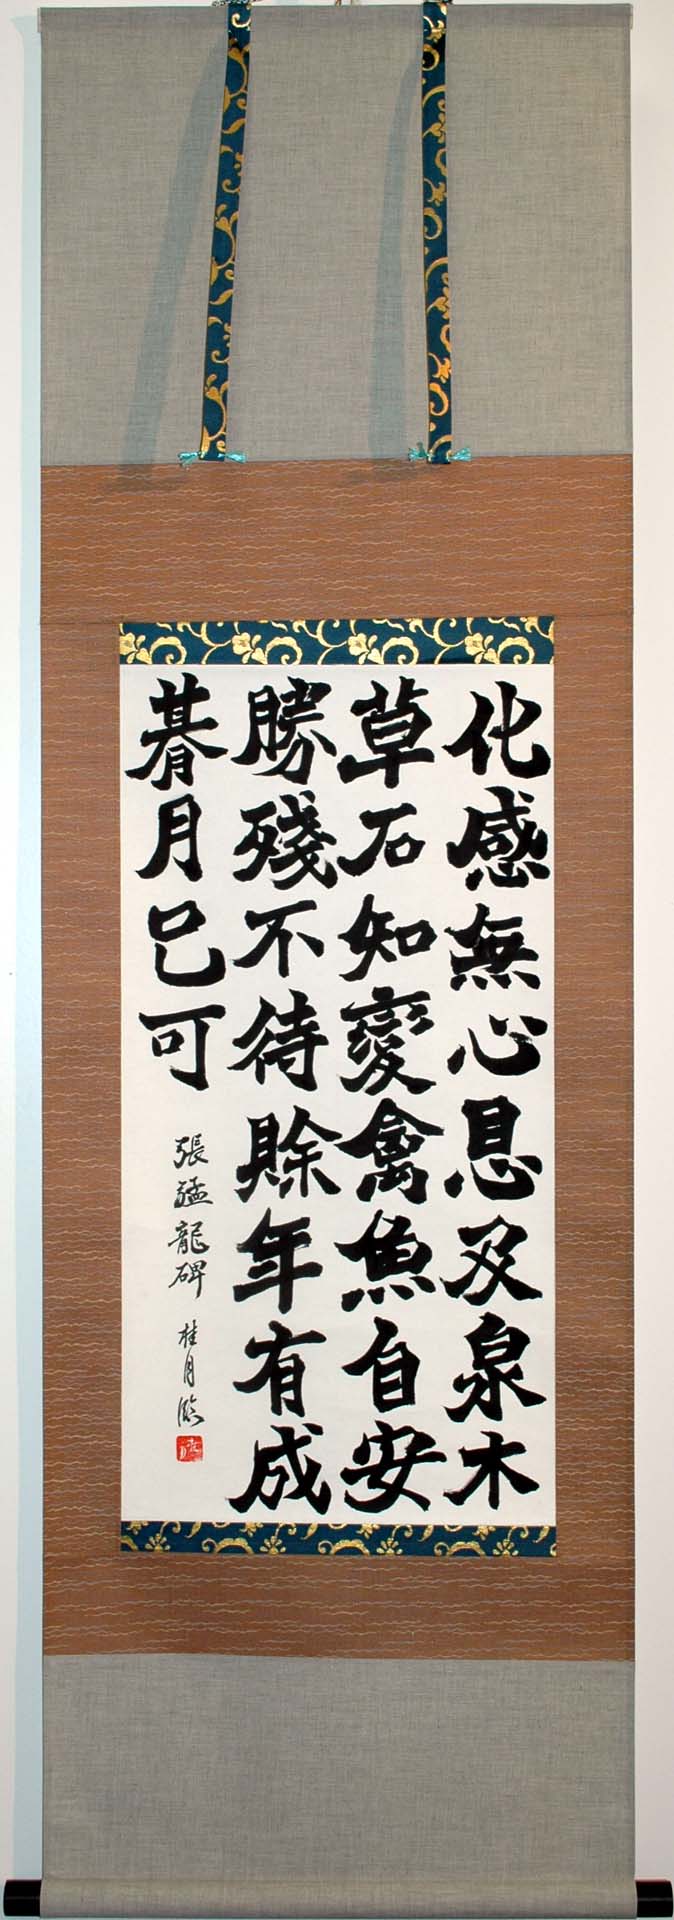 化感無心恩及泉木
草石知變禽魚自安
勝殘不待賒年有成
朞月已可
張猛龍碑 桂月臨